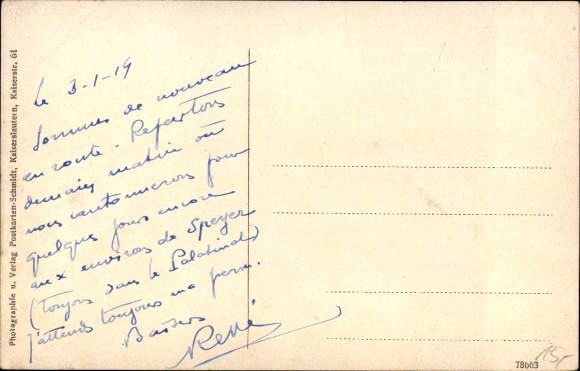 Photographie u. Verlag Postkarten-Schmidt, Kaiserslautern, Kaiserstr. 61
le 3-1-19
Sommes de nouveau
en route. Repartons
demain matin où
nous cantonnerons pour
quelques jours encore
aux environs de Speyer
(toujours dans le Palatinat)
j'attends toujours ma perm.
Baisers
René
78663
15,-